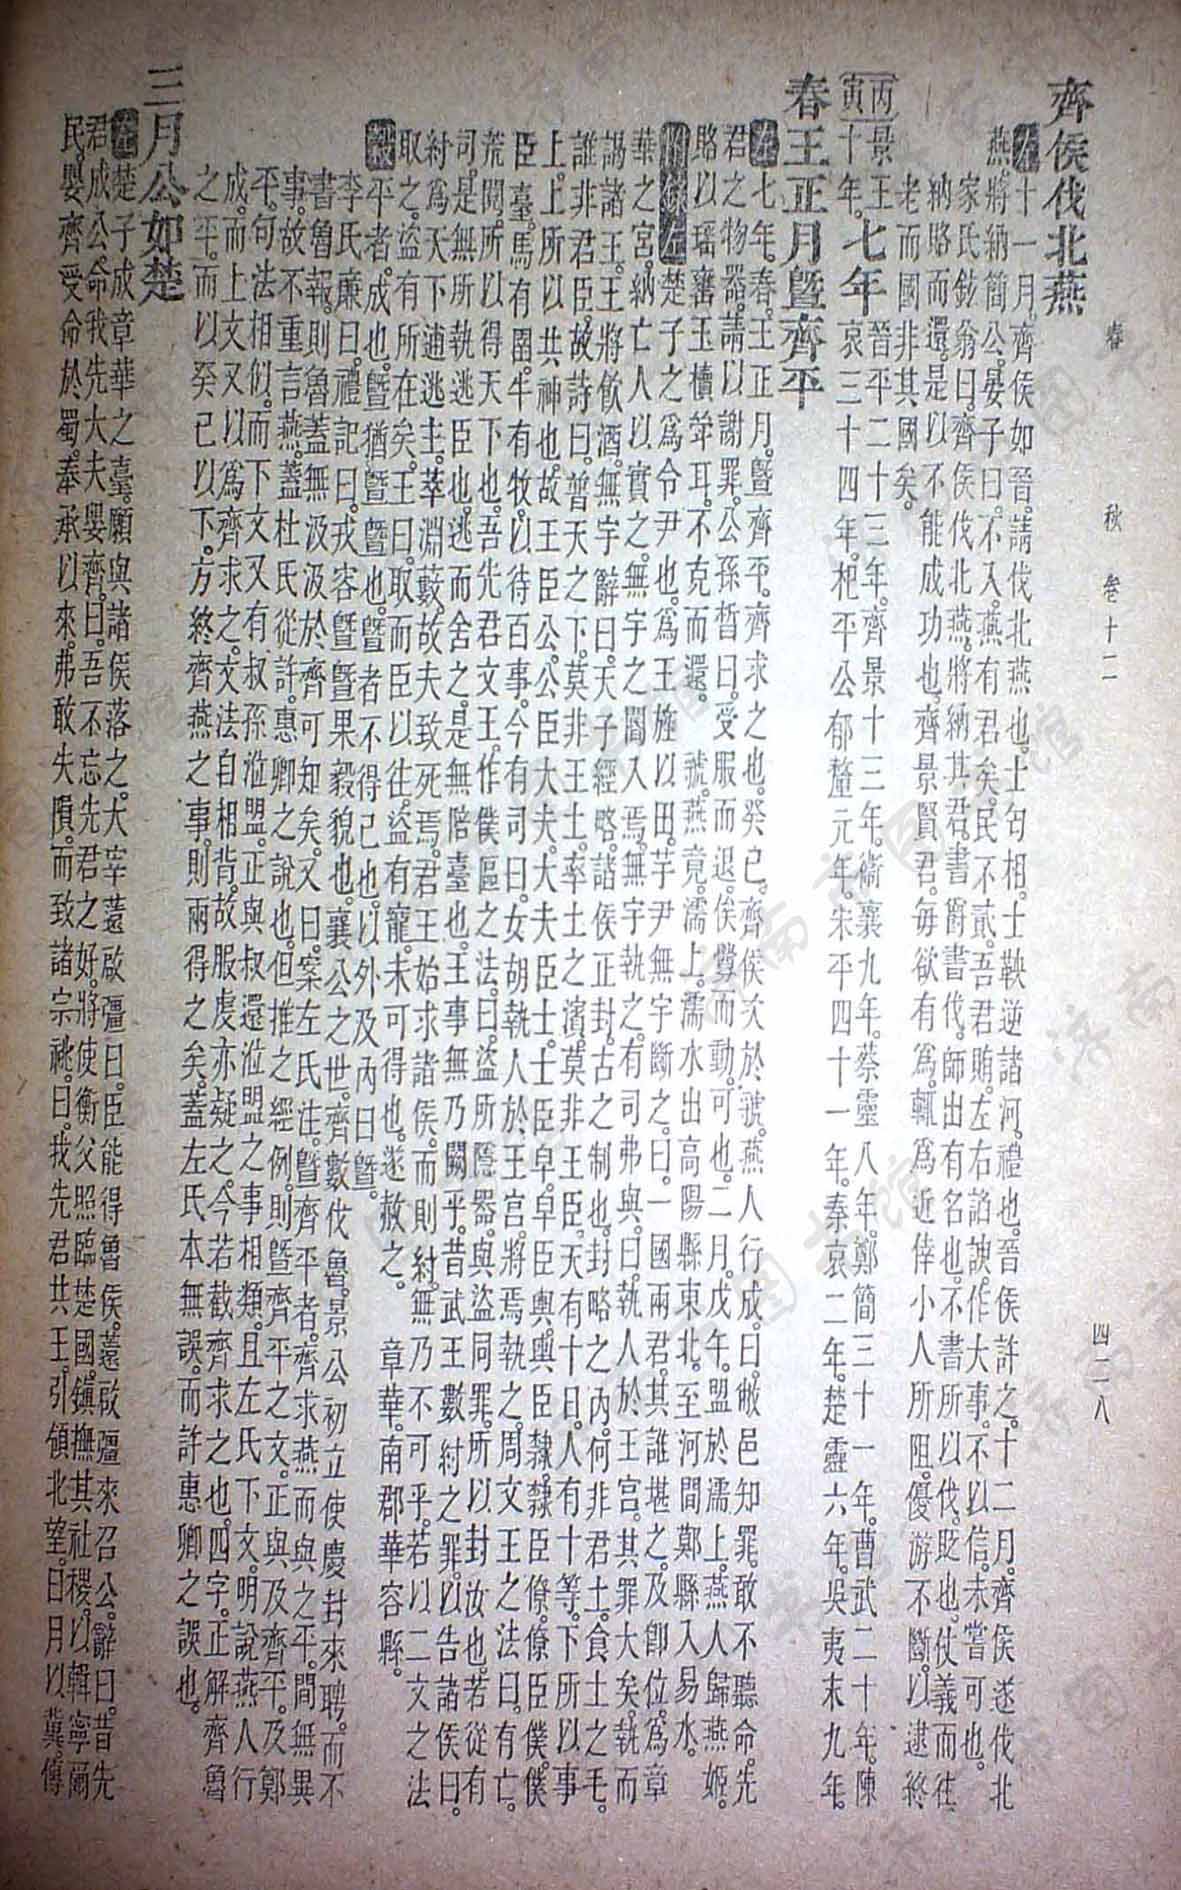 春 秋 卷十二 四二八
齊侯伐北燕
左十一月。齊侯如晉。請伐北燕也。士匄相。士鞅逆諸河。禮也。晉侯許之。十二月。齊侯遂伐北
燕。將納簡公。晏子曰。不入。燕有君矣。民不貳。吾君賄。左右諂諛。作大事。不以信。未嘗可也。
家氏鉉翁曰。齊侯伐北燕。將納其君。書爵書伐。師出有名也。不書所以伐。貶也。仗義而往
納賂而還。是以不能成功也。齊景賢君。每欲有爲。輒爲近倖小人所阻。優游不斷。以逮終
老而國非其國矣。
丙寅
景王十年。七年 晉平二十三年。齊景十三年。衞襄九年。蔡靈八年。鄭簡三十一年。曹武二十年。陳
哀三十四年。杞平公郁釐元年。宋平四十一年。秦哀二年。楚靈六年。吳夷末九年。
春王正月暨齊平
左七年。春。王正月。暨齊平。齊求之也。癸已。齊侯次於虢。燕人行成。曰。敝邑知罪。敢不聽命。先
君之物器。請以謝罪。公孫晳曰。受服而退。俟釁而動。可也。二月。戊午。盟於濡上。燕人歸燕姬。
賂以瑤罋玉櫝斝耳。不克而還。 虢。燕竟。濡上。濡水出高陽縣東北。至河間鄭縣入易水。
附錄左楚子之爲令尹也。爲王旌以田。芋尹無宇斷之。曰。一國兩君。其誰堪之。及卽位。爲章
華之宮。納亡人以實之。無宇之閽入焉。無宇執之。有司弗與。曰。執人於王宮。其罪大矣。執而
謁諸王。王將飮酒。無宇辭曰。天子經略。諸侯正封。古之制也。封略之內。何非君土。食土之毛。
誰非君臣。故詩曰。普天之下。莫非王土。率土之濱。莫非王臣。天有十日。人有十等。下所以事
上。上所以共神也。故王臣公。公臣大夫。大夫臣士。士臣皁。皁臣輿。輿臣隸。隸臣僚。僚臣僕。僕
臣臺。馬有圉。牛有牧。以待百事。今有司曰。女胡執人於王宮。將焉執之。周文王之法曰。有亡。
荒閱。所以得天下也。吾先君文王。作僕區之法。曰。盜所隱器。與盜同罪。所以封汝也。若從有
司。是無所執逃臣也。逃而舍之。是無陪臺也。王事無乃闕乎。昔武王數紂之罪。以告諸侯曰。
紂爲天下逋逃主。萃淵藪。故夫致死焉。君王始求諸侯。而則紂。無乃不可乎。若以二文之法
取之。盜有所在矣。王曰。取而臣以往。盜有寵。未可得也。遂赦之。 章華。南郡華容縣。
平者。成也。曁猶曁曁也。曁者不得已也。以外及內曰曁。
李氏廉曰。禮記曰。戎容曁曁果毅貌也。襄公之世。齊數伐魯。景公初立使慶封來聘。而不
書魯報。則魯蓋無汲汲於齊可知矣。又曰。案左氏注。曁齊平者。齊求燕而與之平。間無異
事。故不重言燕。蓋杜氏從許。惠卿之說也。但推之經例。則曁齊平之文。正與及齊平。及鄭
平。句法相似。而下文又有叔孫涖盟。正與叔還涖盟之事相類。且左氏下文。明說燕人行
成。而上文又以爲齊求之。文法自相背。故服虔亦疑之。今若截齊求之也。四字。正解齊魯
之平。而以癸己以下。方終齊燕之事。則兩得之矣。蓋左氏本無誤。而許惠卿之誤也。
三月公如楚
左楚子成章華之臺。願與諸侯落之。大宰薳啟彊曰。臣能得魯侯。薳啟彊來召公。辭曰。昔先
君成公。命我先大夫嬰齊。曰。吾不忘先君之好。將使衡父照臨楚國。鎭撫其社稷。以輯寧爾
民。嬰齊受命於蜀。奉承以來。弗敢失隕。而致諸宗祧。曰。我先君共王。引領北望。日月以冀。傳